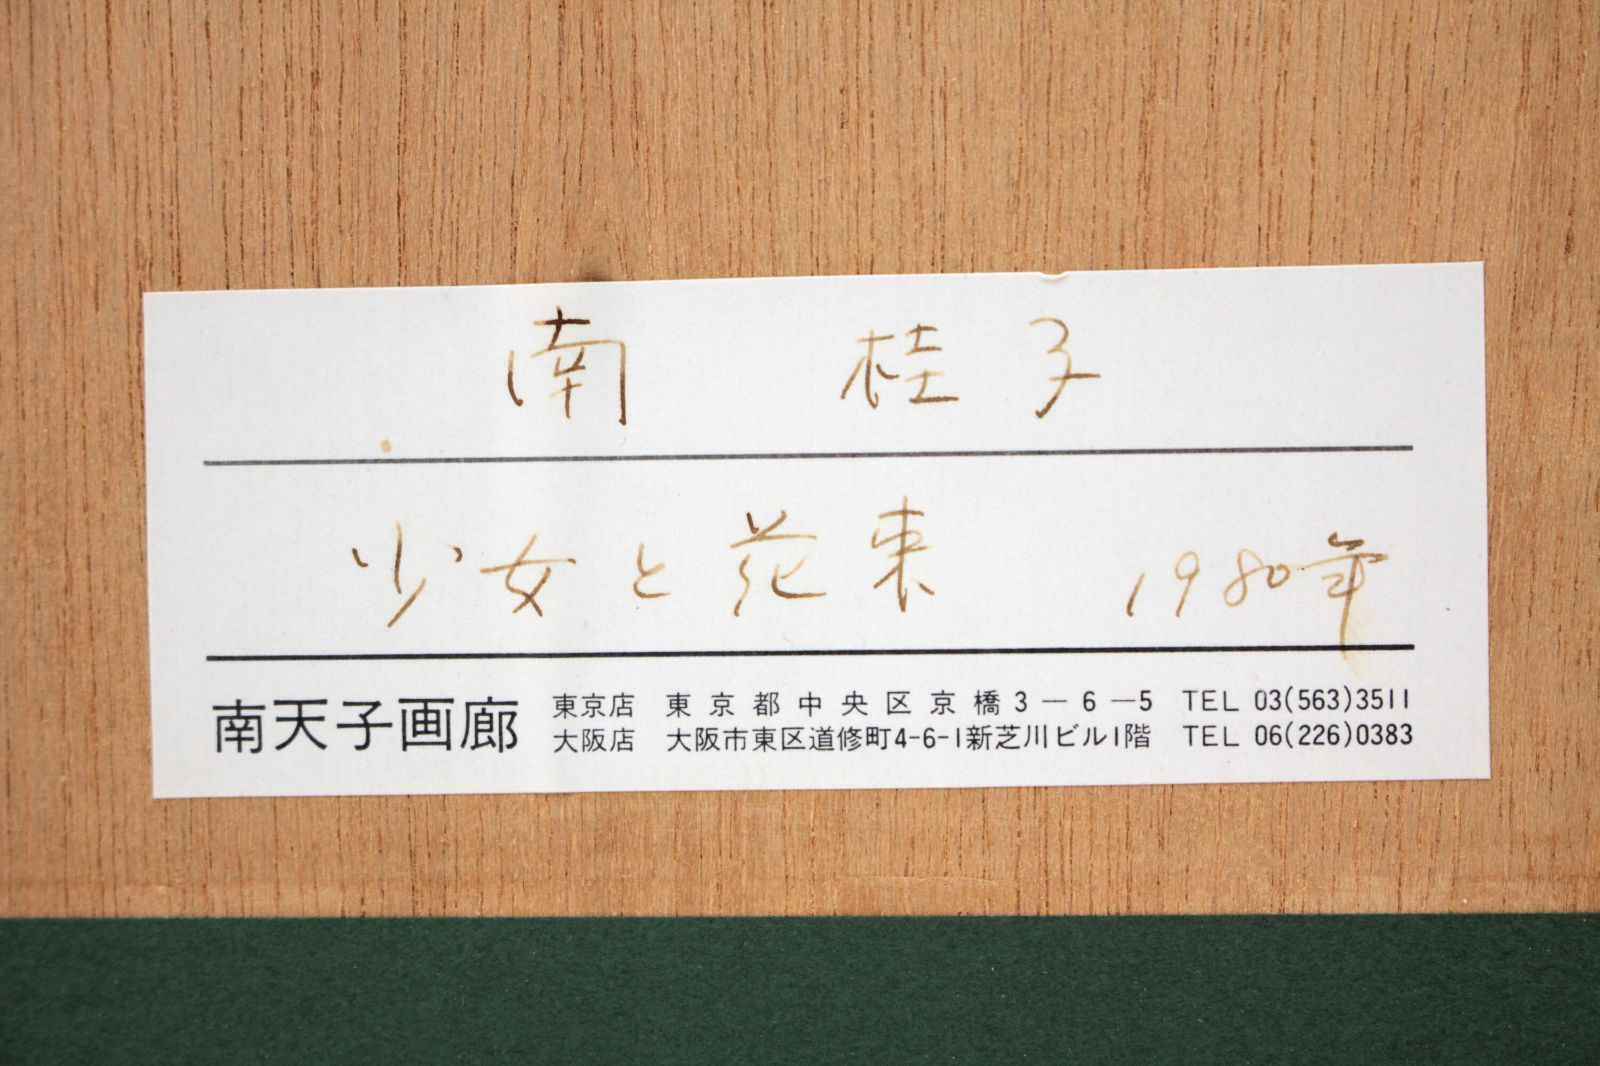 南 桂子
少女と花束 1980年
南天子画廊
東京店 東京都中央区京橋3-6-5 TEL 03(563)3511
大阪店 大阪市東区道修町4-6-1新芝川ビル1階 TEL 06(226)0383